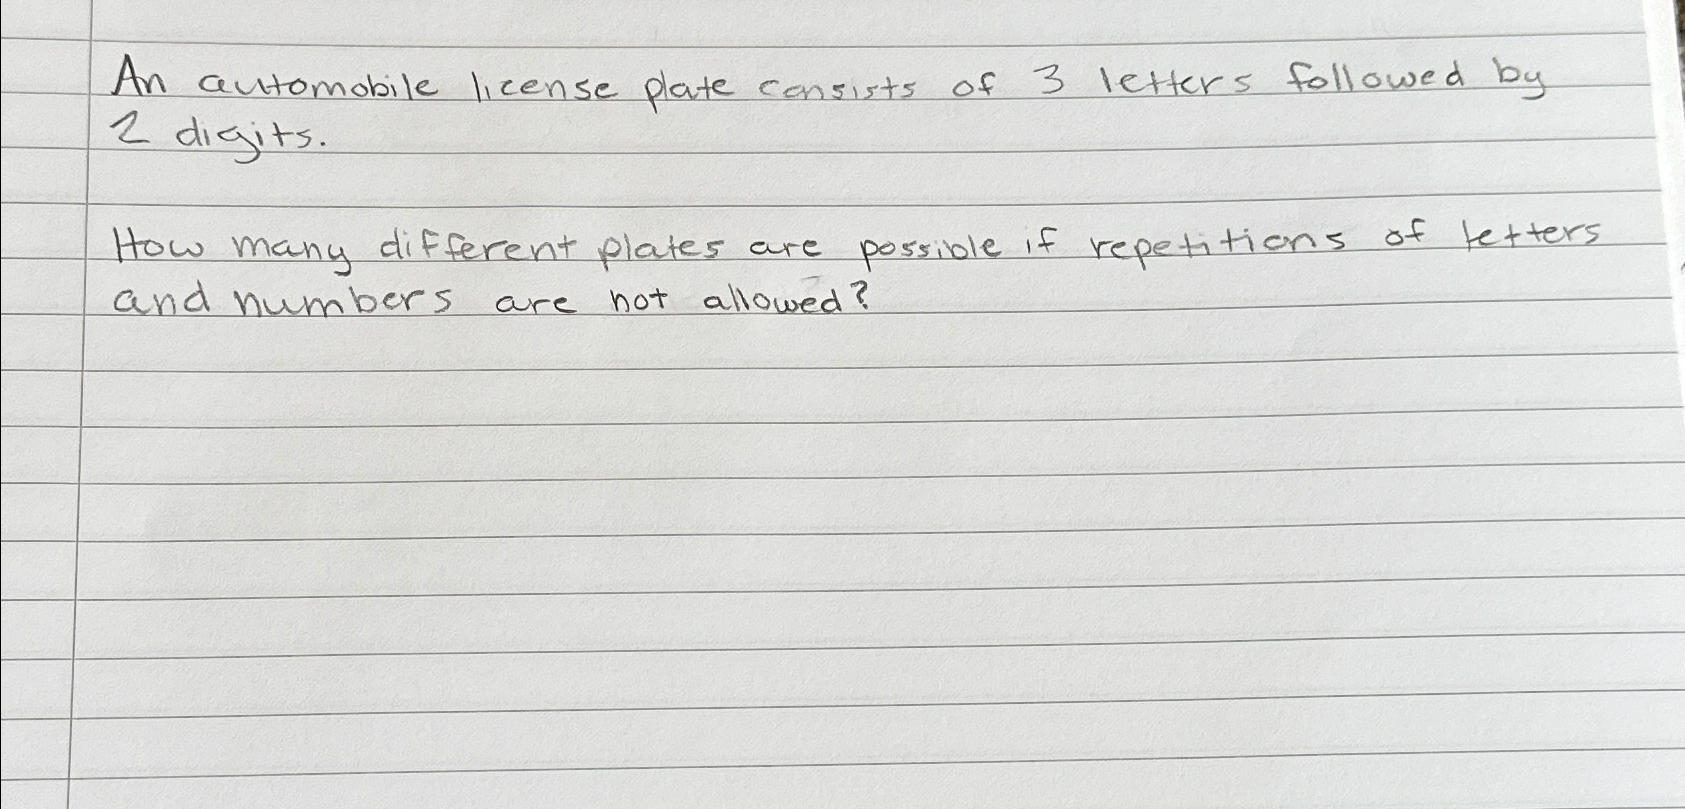 An automobile license plate consists of 3 letters followed by
2 digits.
How many different plates are possible if repetitions of letters
and numbers are not allowed?